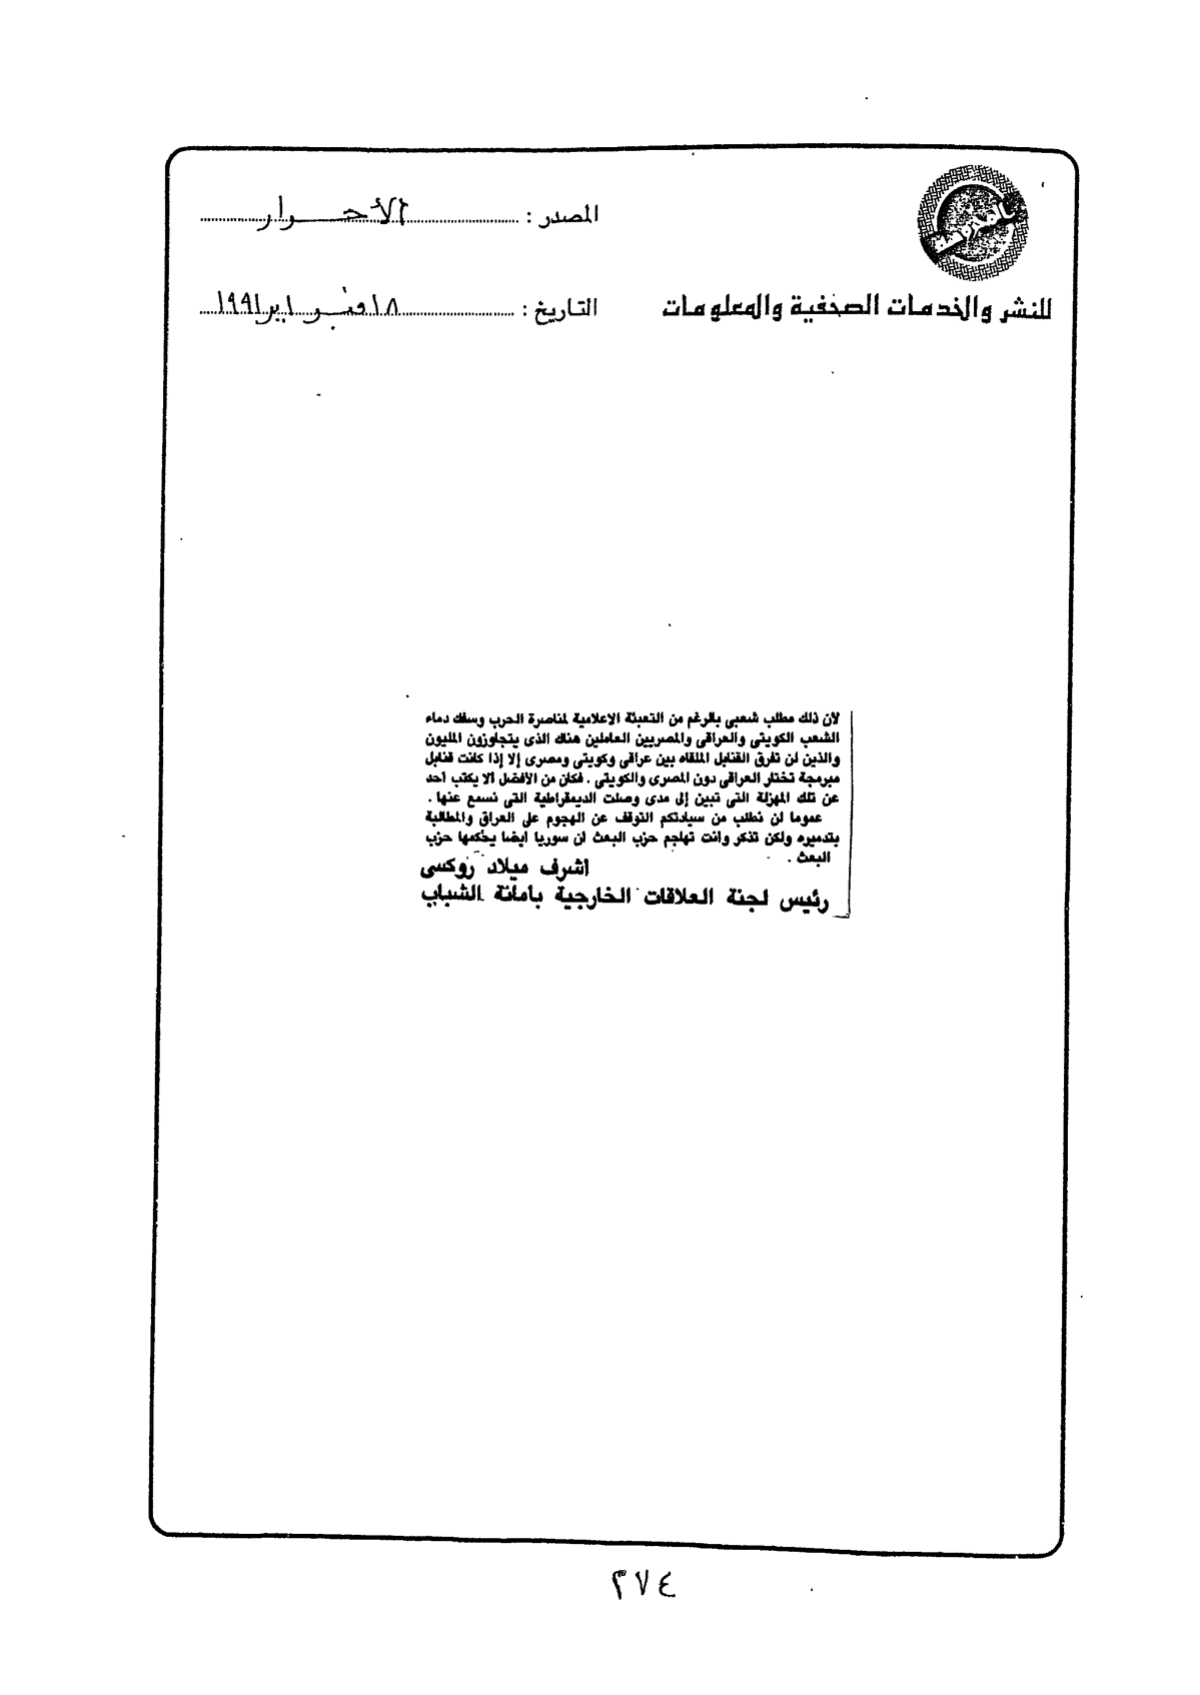 المصدر : الأحرار
للنشر والخدمات الصحفية والمعلومات
التاريخ : ١٨ فبراير ١٩٩١
لأن ذلك مطلب شعبى بالرغم من التعبئة الاعلامية لمناصرة الحرب وسفك دماء
الشعب الكويتى والعراقى والمصريين العاملين هناك الذى يتجاوزون المليون
والذين لن تفرق القنابل الملقاه بين عراقى وكويتى ومصرى إلا إذا كانت قنابل
مبرمجة تختار العراقى دون المصرى والكويتى . فكان من الأفضل ألا يكتب أحد
عن تلك المهزلة التى تبين إلى مدى وصلت الديمقراطية التى نسمع عنها .
عموما لن نطلب من سيادتكم التوقف عن الهجوم على العراق والمطالبة
بتدميره ولكن تذكر وأنت تهاجم حزب البعث أن سوريا أيضا يحكمها حزب
البعث .
أشرف ميلاد روكسى
رئيس لجنة العلاقات الخارجية بأمانة الشباب
٢٧٤